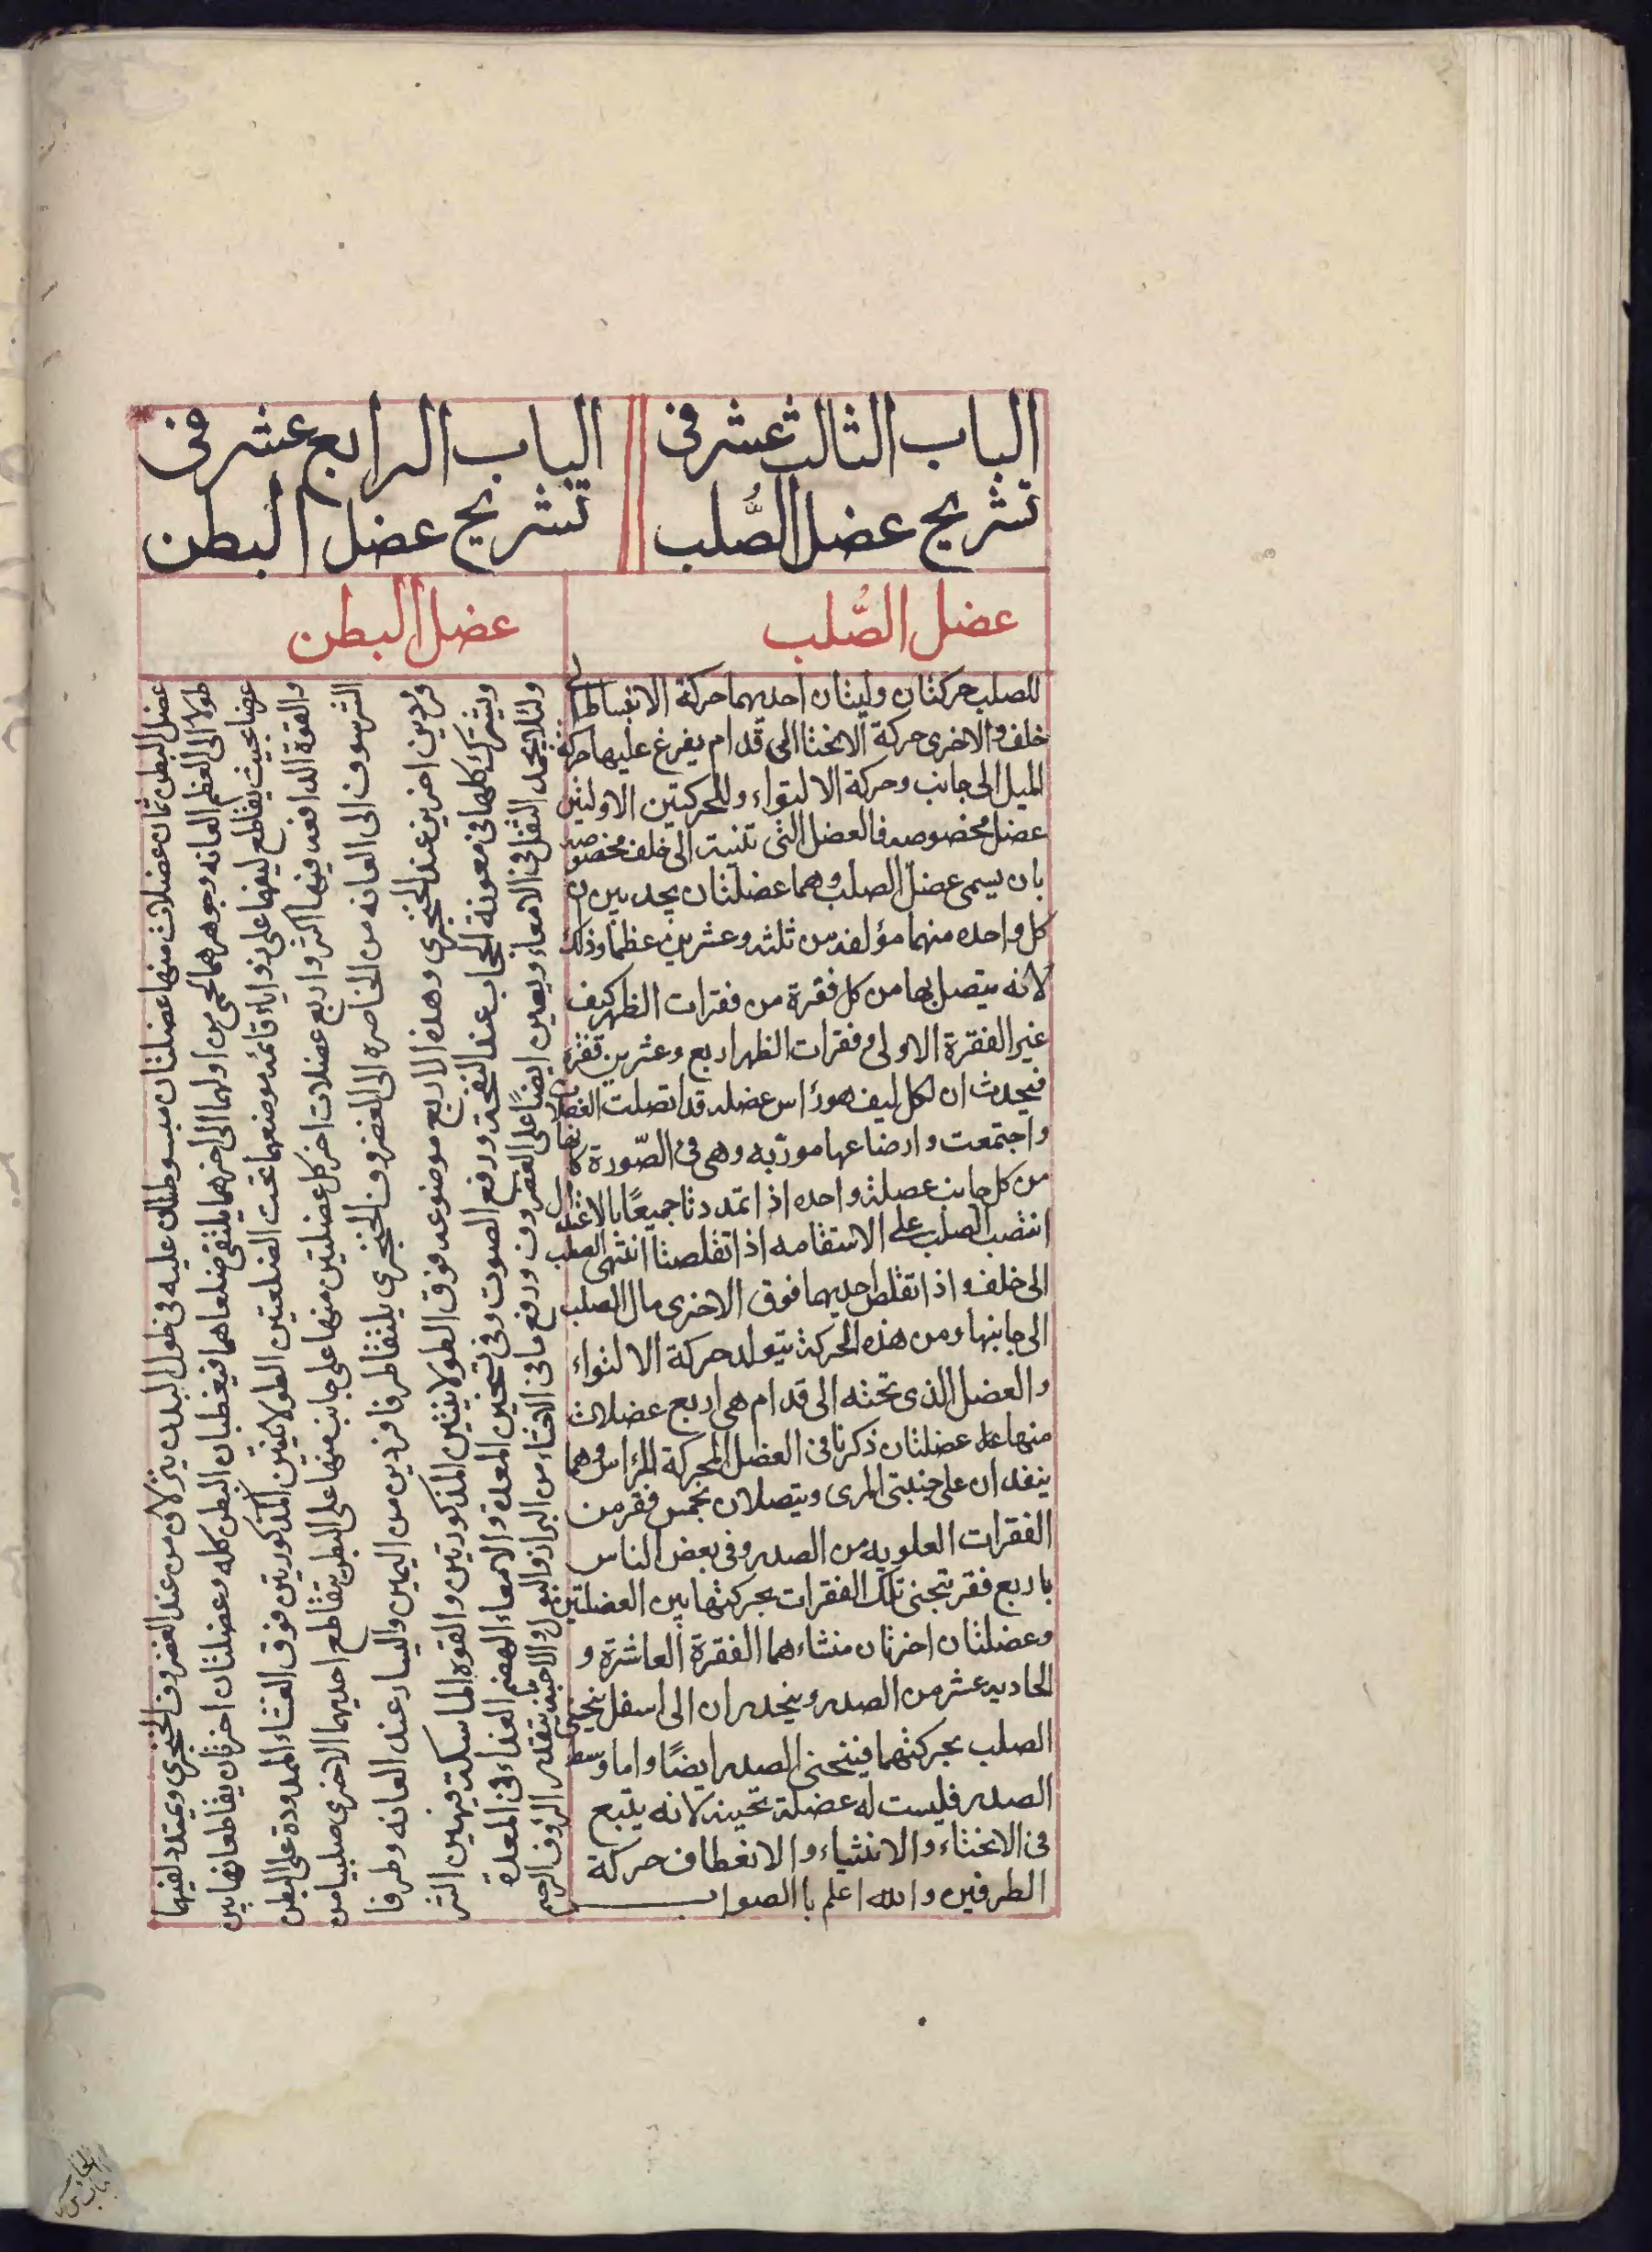 الباب الثالث عشر فى
تشريح عضل الصُّلب
الباب الرابع عشر فى
تشريح عضل البطن
عضل الصُّلب
للصلب حركتان وليتان احديهما حركة الانبساط الى
خلف والاخرى حركة الانحنا الى قدام يفرغ عليها حركة
الميل الى جانب وحركة الالتواء وللحركتين الاوليتين
عضل مخصوصه فالعضل التى تثنيه الى خلف مخصوصه
بان يسمى عضل الصلب وهما عضلتان يحدسن ان
كل واحده منهما مؤلفه من ثلثه وعشرين عظما وذلك
لانه يتصل بها من كل فقرة من فقرات الظهر ليف
غير الفقرة الاولى وفقرات الظهر اربع وعشرين فقرة
فيحدث ان لكل ليف هو رأس عضله قد اتصلت العضلات
واجتمعت وارضاعها موربه وهى فى الصّورة كانها
من كل جانب عضلة واحده اذا تمددتا جميعًا بالاعتدال
انتصب الصلب على الاستقامه اذا تقلصتا انثنى الصلب
الى خلف واذا تقلص احديهما فوق الاخرى مال الصلب
الى جانبها ومن هذه الحركة يتولد حركة الالتواء
والعضل الذى تحنه الى قدام هى اربع عضلات
منها عضلتان ذكرنا فى العضل المحركة للرأس وهما
ينفدان على جنبتى المرى ويتصلان بخمس فقر من
الفقرات العلويه من الصدر وفى بعض الناس
باربع فقر تتحنى تلك الفقرات بحركتها بين العضلتين
وعضلتان اخرتان منشاءهما الفقرة العاشرة و
الحاديه عشر من الصدر وينحدران الى اسفل ينحنى
الصلب بحركتهما فينحنى الصدر ايضًا واما وسط
الصدر فليست له عضلة تحينه لانه يتبع
فى الانحناء والانثياء والانعطاف حركة
الطرفين والله اعلم باالصواب
عضل البطن
عضل البطن ثمان عضلات منها عضلتان مبسوطتان عليه فى طول البدن ينزلان من عند الغضروف الخنجرى ويمتد ليفهما
طولا الى العظم العانه وجوهرهما لحمى من اولهما الى اخرهما يلتقى ضلعاهما فيغطيان البطن كله وعضلتان اخرتان يقاطعانها بين
عرضا بحيث يقاطع ليفها على زوايا قائمه موضعهما تحت العضلتين الطولانيتين المذكورتين فوق الغشاء الممدودة على البطن
والقوة الدافعه فيها اكثر واربع عضلات اخر كل عضلتين منها على جانب منها على البطن يتقاطع احديهما الاخرى صليبيا من
الشرسوف الى العانه من الخاصره الى الغضروف الخنجرى يلتقا طرفا فردين من اليمين واليسار عند العانه وطرفا
فردين اخرين عند الخنجرى وهذه الاربع موضوعه فوق الطولانيتين المذكورتين والقوة الماسكة فيهن اكثر
ويشترك كلها فى معونة الحجاب عند النفخة ورفع الصوت وفى تسخين المعدة والامعاء لهضم الغذاء فى المعدة
ولئلا يجمد الثفل فى الامعاء ويعين ايضًا على الغضروف ورفع ما فى الاحشاء من البراز والبول والاجنة بتقدير الرؤف الرحيم
الباب الخامس